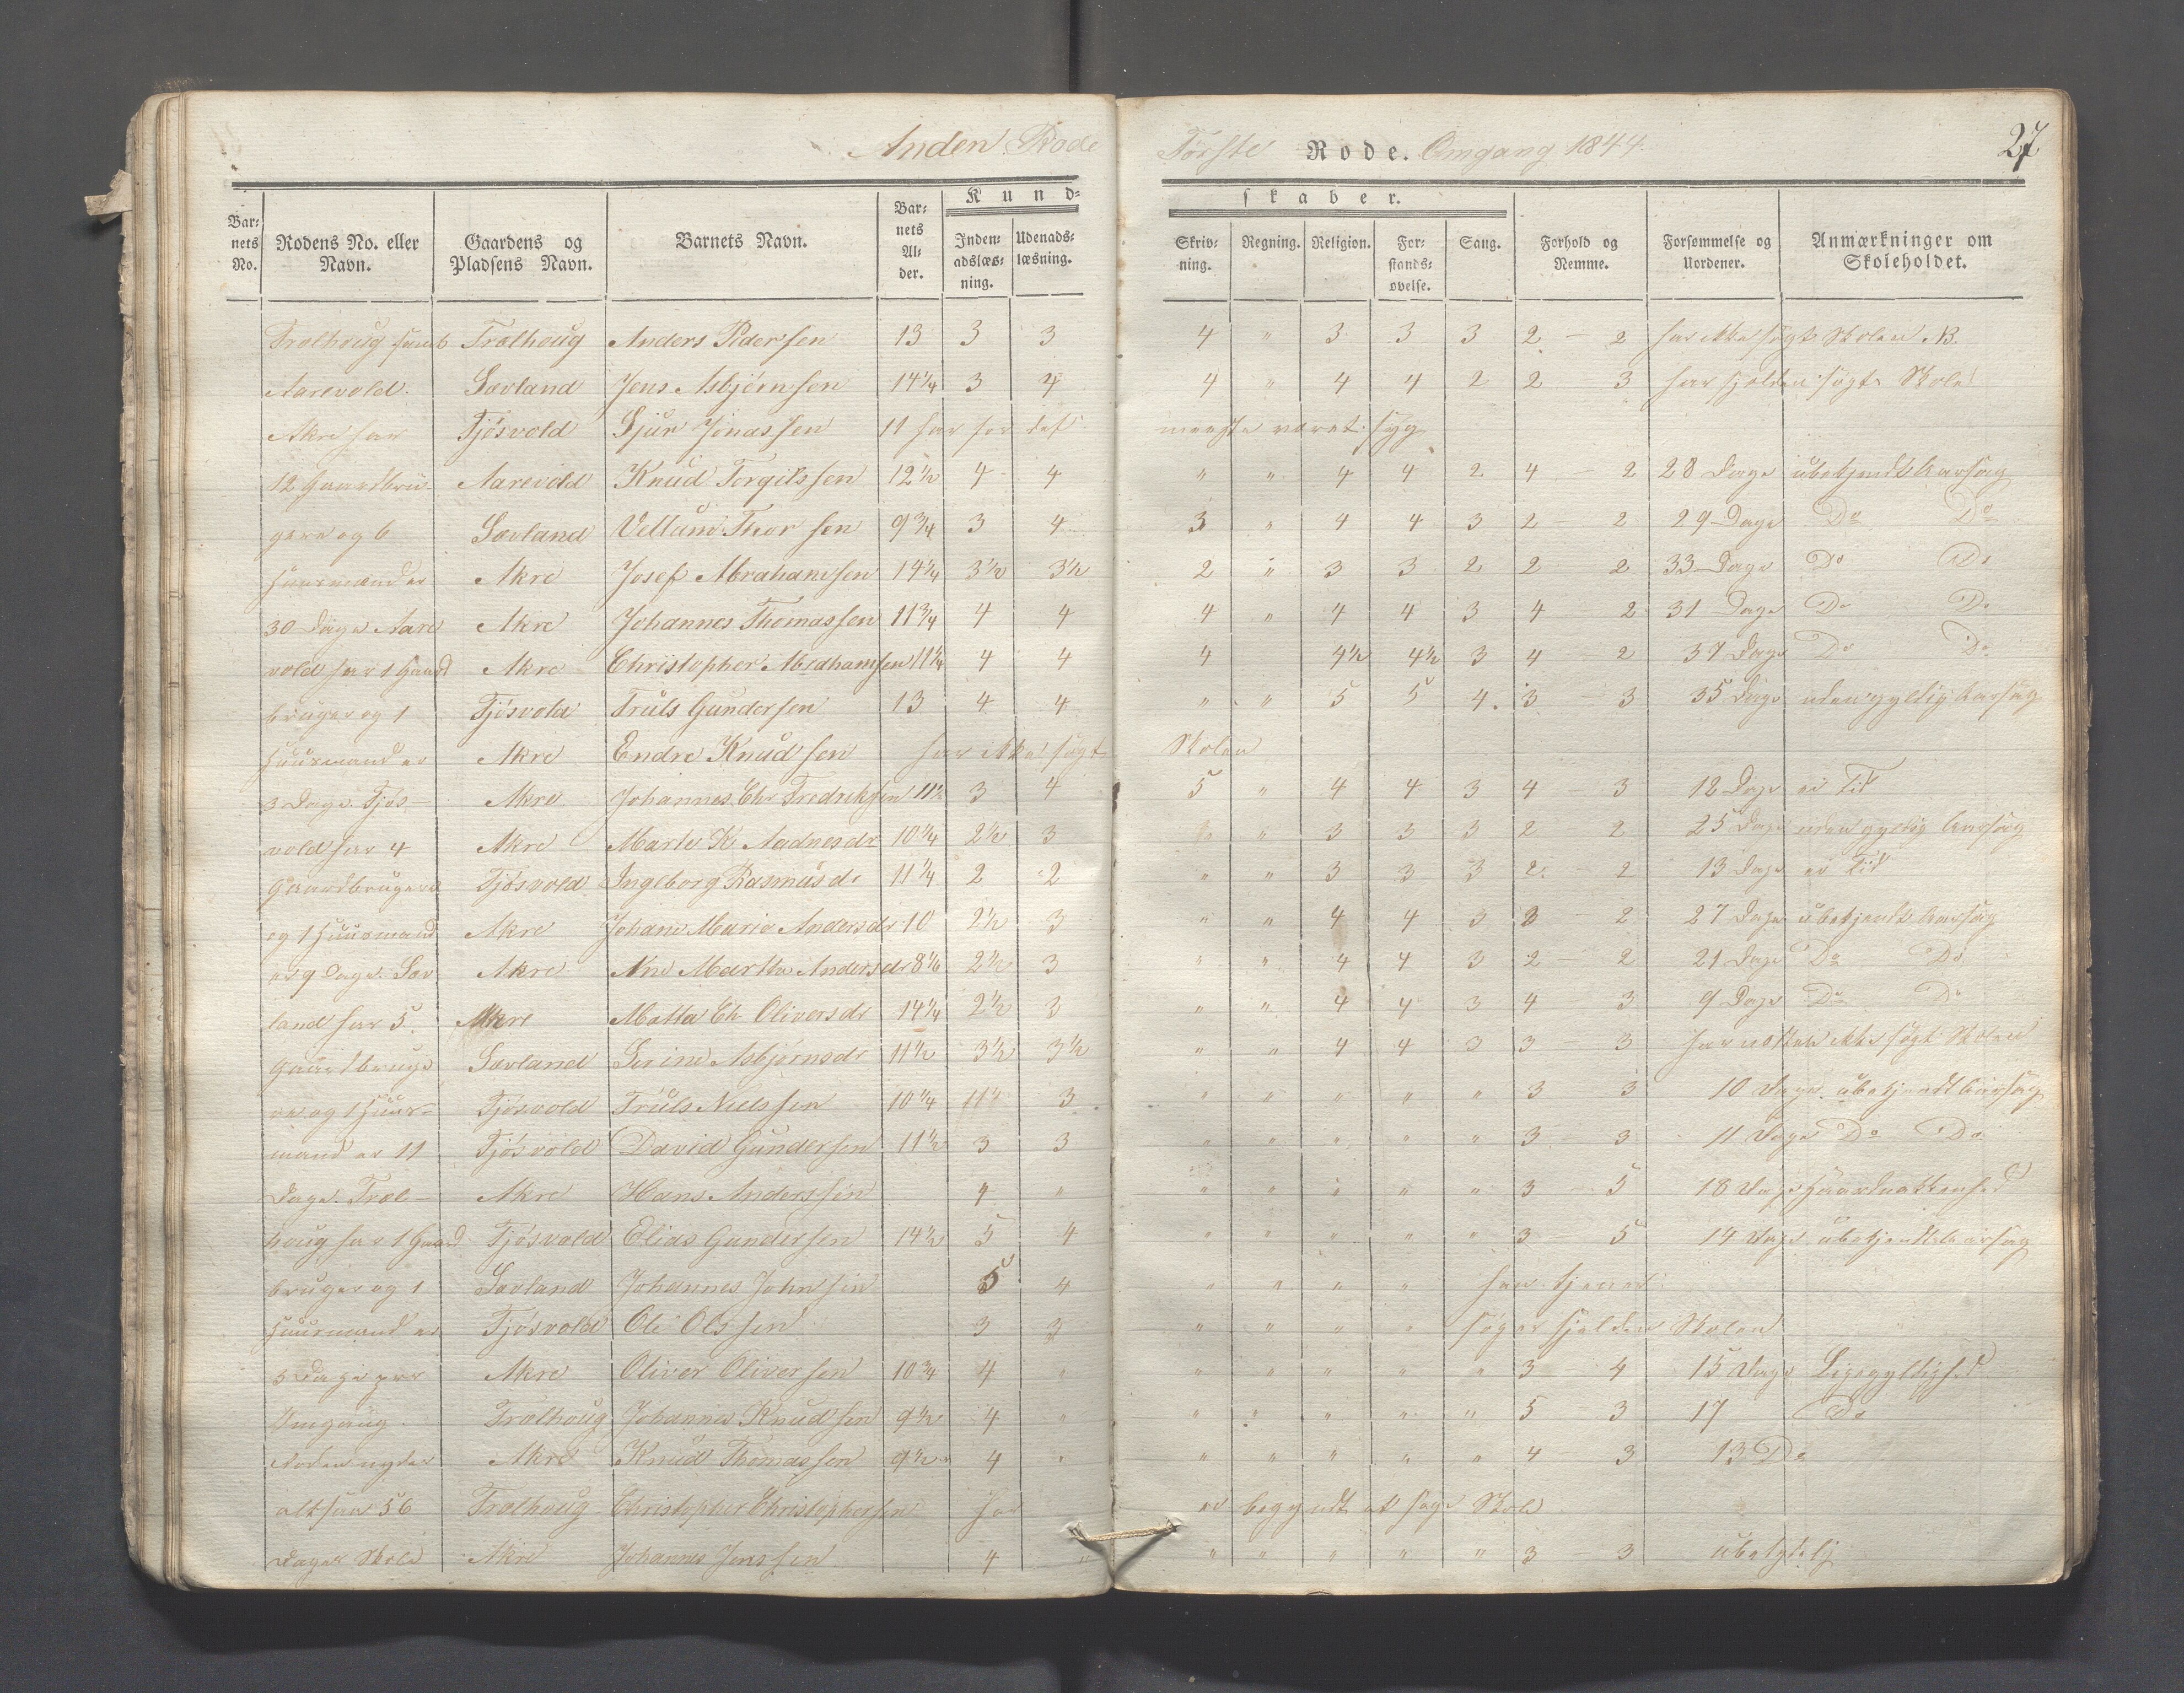 Anden Rode Første Rode. Omgang 1844. 27
Kundskaber.
Barnets No. | Rodens No. eller Navn. | Gaardens og Pladsens Navn. | Barnets Navn. | Barnets Alder. | Indenadslæsning. | Udenadslæsning. | Skrivning. | Regning. | Religion. | Forstandsøvelse. | Sang. | Forhold og Nemme. | Forsømmelse og Uordener. | Anmærkninger om Skoleholdet.
Trælhoug samt | Trælhoug | Anders Pedersen | 13 | 3 | 3 | 4 | " | 3 | 3 | 3 | 2 - 2 | har ikke søgt Skolen
Aarevold. | Sævland | Jens Asbjørnsen | 14 1/4 | 3 | 4 | 4 | " | 4 | 4 | 2 | 2 - 3 | har sjelden søgt Skole
Akre har | Tjøsvold | Sjur Jonassen | 11 har for det meeste været syg
12 Gaardbru- | Aarevold | Knud Torgilssen | 12 1/2 | 4 | 4 | " | " | 4 | 4 | 2 | 4 - 2 | 28 Dage | ubekjendt Aarsag
gere og 6 | Sævland | Thorsen | 9 3/4 | 3 | 4 | 3 | " | 4 | 4 | 3 | 2 - 2 | 29 Dage | Do Do
Huusmænd er | Akre | Josef Abrahamsen | 14 1/4 | 3 1/2 | 3 1/2 | 2 | " | 3 | 3 | 2 | 2 - 2 | 33 Dage | Do Do
30 Dage Aare | Akre | Johannes Thomassen | 11 3/4 | 4 | 4 | 4 | " | 4 | 4 | 3 | 4 - 2 | 31 Dage | Do Do
vold har 1 Gaard | Akre | Christopher Abrahamsen | 11 1/4 | 4 | 4 | 4 | 4 1/2 | 4 1/2 | 3 | 4 - 2 | 37 Dage | Do Do
bruger og 1 | Tjøsvold | Truls Gundersen | 13 | 4 | 4 | " | " | 5 | 5 | 4. | 3 - 3 | 35 Dage | uden gyldig Aarsag
Huusmand er | Akre | Endre Knudsen | har ikke søgt Skolen
3 Dage. Tjøs- | Akre | Johannes Chr Fredriksen | 11 1/2 | 3 | 4 | 5 | " | 4 | 4 | 3 | 4 - 3 | 12 Dage | ei Tid
vold har 4 | Akre | Marte K Aadnesdr | 10 1/4 | 2 1/2 | 3 | " | 3 | 3 | 3 | 2 - 2 | 25 Dage | uden gyldig Aarsag
Gaardbrugere | Tjøsvold | Ingeborg Rasmusdr | 11 1/4 | 2 | 2 | " | " | 3 | 3 | 3 | 2 - 2 | 13 Dage | ei Tid
og 1 Huusmand | Akre | Johane Marie Andersdr | 10 | 2 1/2 | 3 | " | " | 4 | 4 | 3 | 3 - 2 | 27 Dage | ubekjendt Aarsag
er 9 Dage. Sæv | Akre | Ane Martha Andersdr | 2 1/2 | 3 | " | " | 4 | 4 | 3 | 2 - 2 | 21 Dage | Do Do
land har 5. | Akre | Oliversdr | 14 1/4 | 2 1/2 | 3 | " | " | 4 | 4 | 3 | 4 - 3 | 9 Dage | Do Do
Gaardbruge | Sævland | Serine Asbjørnsdr | 11 1/2 | 3 1/2 | 3 1/2 | " | " | 4 | 4 | 3 | 3 - 3 | har næsten ikke søgt Skolen
re og 1 Huus- | Tjøsvold | Truls Nielssen | 10 1/4 | 3 | " | " | " | " | " | 3 3 | 10 Dage. ubekjendt Aarsag
mand er 11 | Tjøsvold | David Gundersen | 11 1/2 | 3 | 3 | " | " | " | " | " | 3 - 3 | 11 Dage Do Do
Dage. Træl- | Akre | Hans Anderssen | 4 | " | " | " | " | " | " | 3 - 5 | 18 Dage
houg har 1 Gaard | Tjøsvold | Elias Gundersen | 14 1/2 | 5 | 4 | " | " | " | " | " | 3 - 5 | 14 Dage ubekjendt Aarsag
bruger og 1 | Sævland | Johannes Johnsen | 5 | 4 | " | " | " | " | har tjener
Huusmand er | Tjøsvold | Ole Olssen | 3 | 3 | " | " | " | " | søger sjelden Skolen
3 Dage per | Akre | Oliver Oliversen | 10 3/4 | 4 | " | " | " | " | " | " | 3 - 4 | 15 Dage Ligegyldighed
Omgang. | Trælhoug | Johannes Knudsen | 9 1/2 | 4 | " | " | " | " | " | " | 5 - 3 | 17 | Do
Roden nyder | Akre | Knud Thomassen | 9 1/2 | 4 | " | " | " | " | " | " | 4 - 3 | 13 Do
altsaa 56 | Trælhoug | Christopher Christophersen | har ei begyndt at søge Skole
Dages Skole | Akre | Johannes Jenssen | 4 | " | " | " | " | " | " | 3 - 3